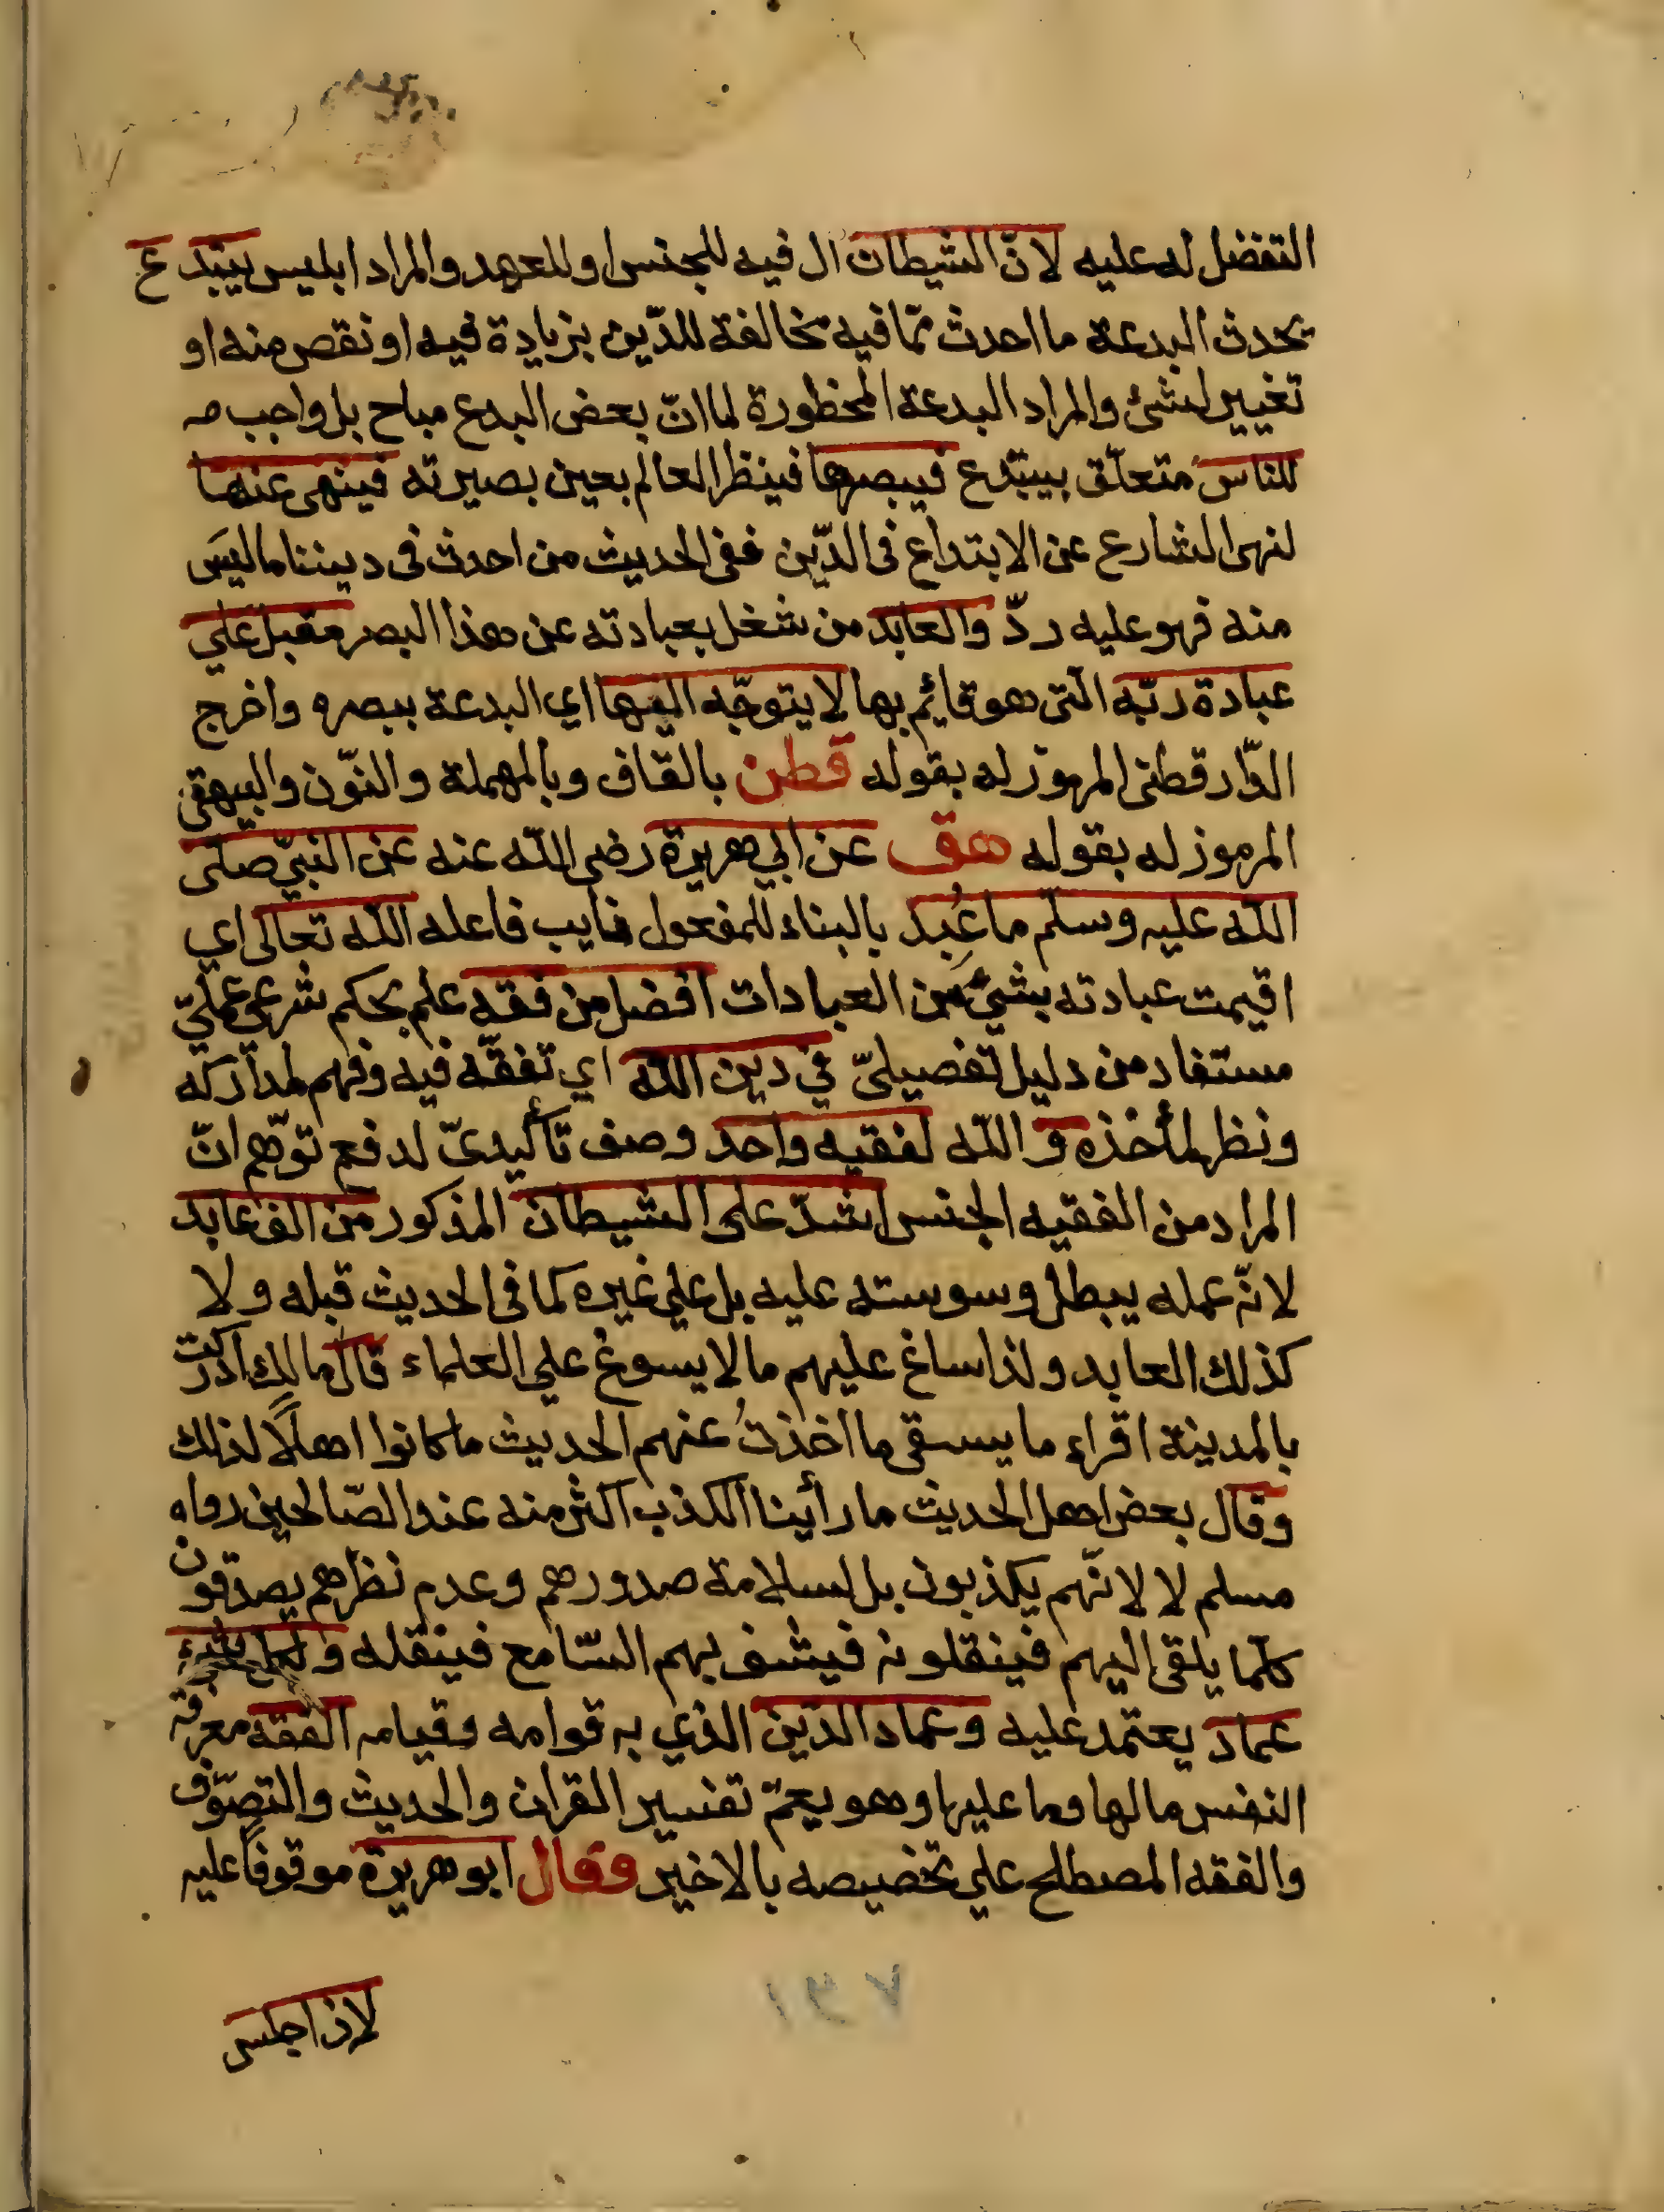 التفضل له عليه لانّ الشيطان ال فيه للجنس او للعهد والمراد ابليس يبتدع
يحدث البدعة ما احدث ممّا فيه مخالفة للدّين بزيادة فيه او نقص منه او
تغيير لشئ والمراد البدعة المحظورة لما انّ بعض البدع مباح بل واجب مه
للناس متعلّق بيبتدع فيبصرها فينظر العالم بعين بصيرته فينهى عنها
لنهى الشارع عن الابتداع فى الدّين ففى الحديث من احدث فى ديننا ما ليس
منه فهو عليه ردّ والعابد من شغل بعبادته عن هذا البصر مقبل علي
عبادة ربّه الّتى هو قايم بها لا يتوجّه اليها اي البدعة ببصره واخرج
الدّارقطنى المرموز له بقوله قطن بالقاف وبالمهملة والنّون والبيهقى
المرموز له بقوله هق عن ابي هريرة رضى اللّه عنه عن النبيّ صلّى
اللّه عليه وسلّم ما عُبِد بالبناء للمفعول نايب فاعله اللّه تعالى اي
اقيمت عبادته بشيئ من العبادات افضل من فقه علم بحكم شرعي عمليّ
مستفاد من دليل تفصيلىّ في دين اللّه اي تفقّه فيه وفهم لمداركه
ونظر لمأخذه و اللّه لفقيه واحد وصف تأكيدىّ لدفع توهّم انّ
المراد من الفقيه الجنس اشدّ على الشيطان المذكور من الف عابد
لانّ عمله يبطل وسوسته عليه بل علي غيره كما فى الحديث قبله ولا
كذلك العابد ولذا ساغ عليهم ما لا يسوغ علي العلماء قال مالك ادركت
بالمدينة اقراء ما يسقى ما اخذتُ عنهم الحديث ما كانوا اهلًا لذلك
وقال بعض اهل الحديث ما رأينا الكذب اكثر منه عند الصّالحين رواه
مسلم لا لانّهم يكذبون بل لسلامة صدورهم وعدم نظرهم يصدقون
كلّما يلقى اليهم فينقلونه فيشف بهم السّامع فينقله ولكل شيء
عماد يعتمد عليه وعماد الدّين الذي به قوامه وقيامه الفقه معرفة
النفس ما لها وما عليها وهو يعمّ تفسير القران والحديث والتصوّف
والفقه المصطلح علي تخصيصه بالاخير وقال ابو هريرة موقوفًا عليه
لان اجلس